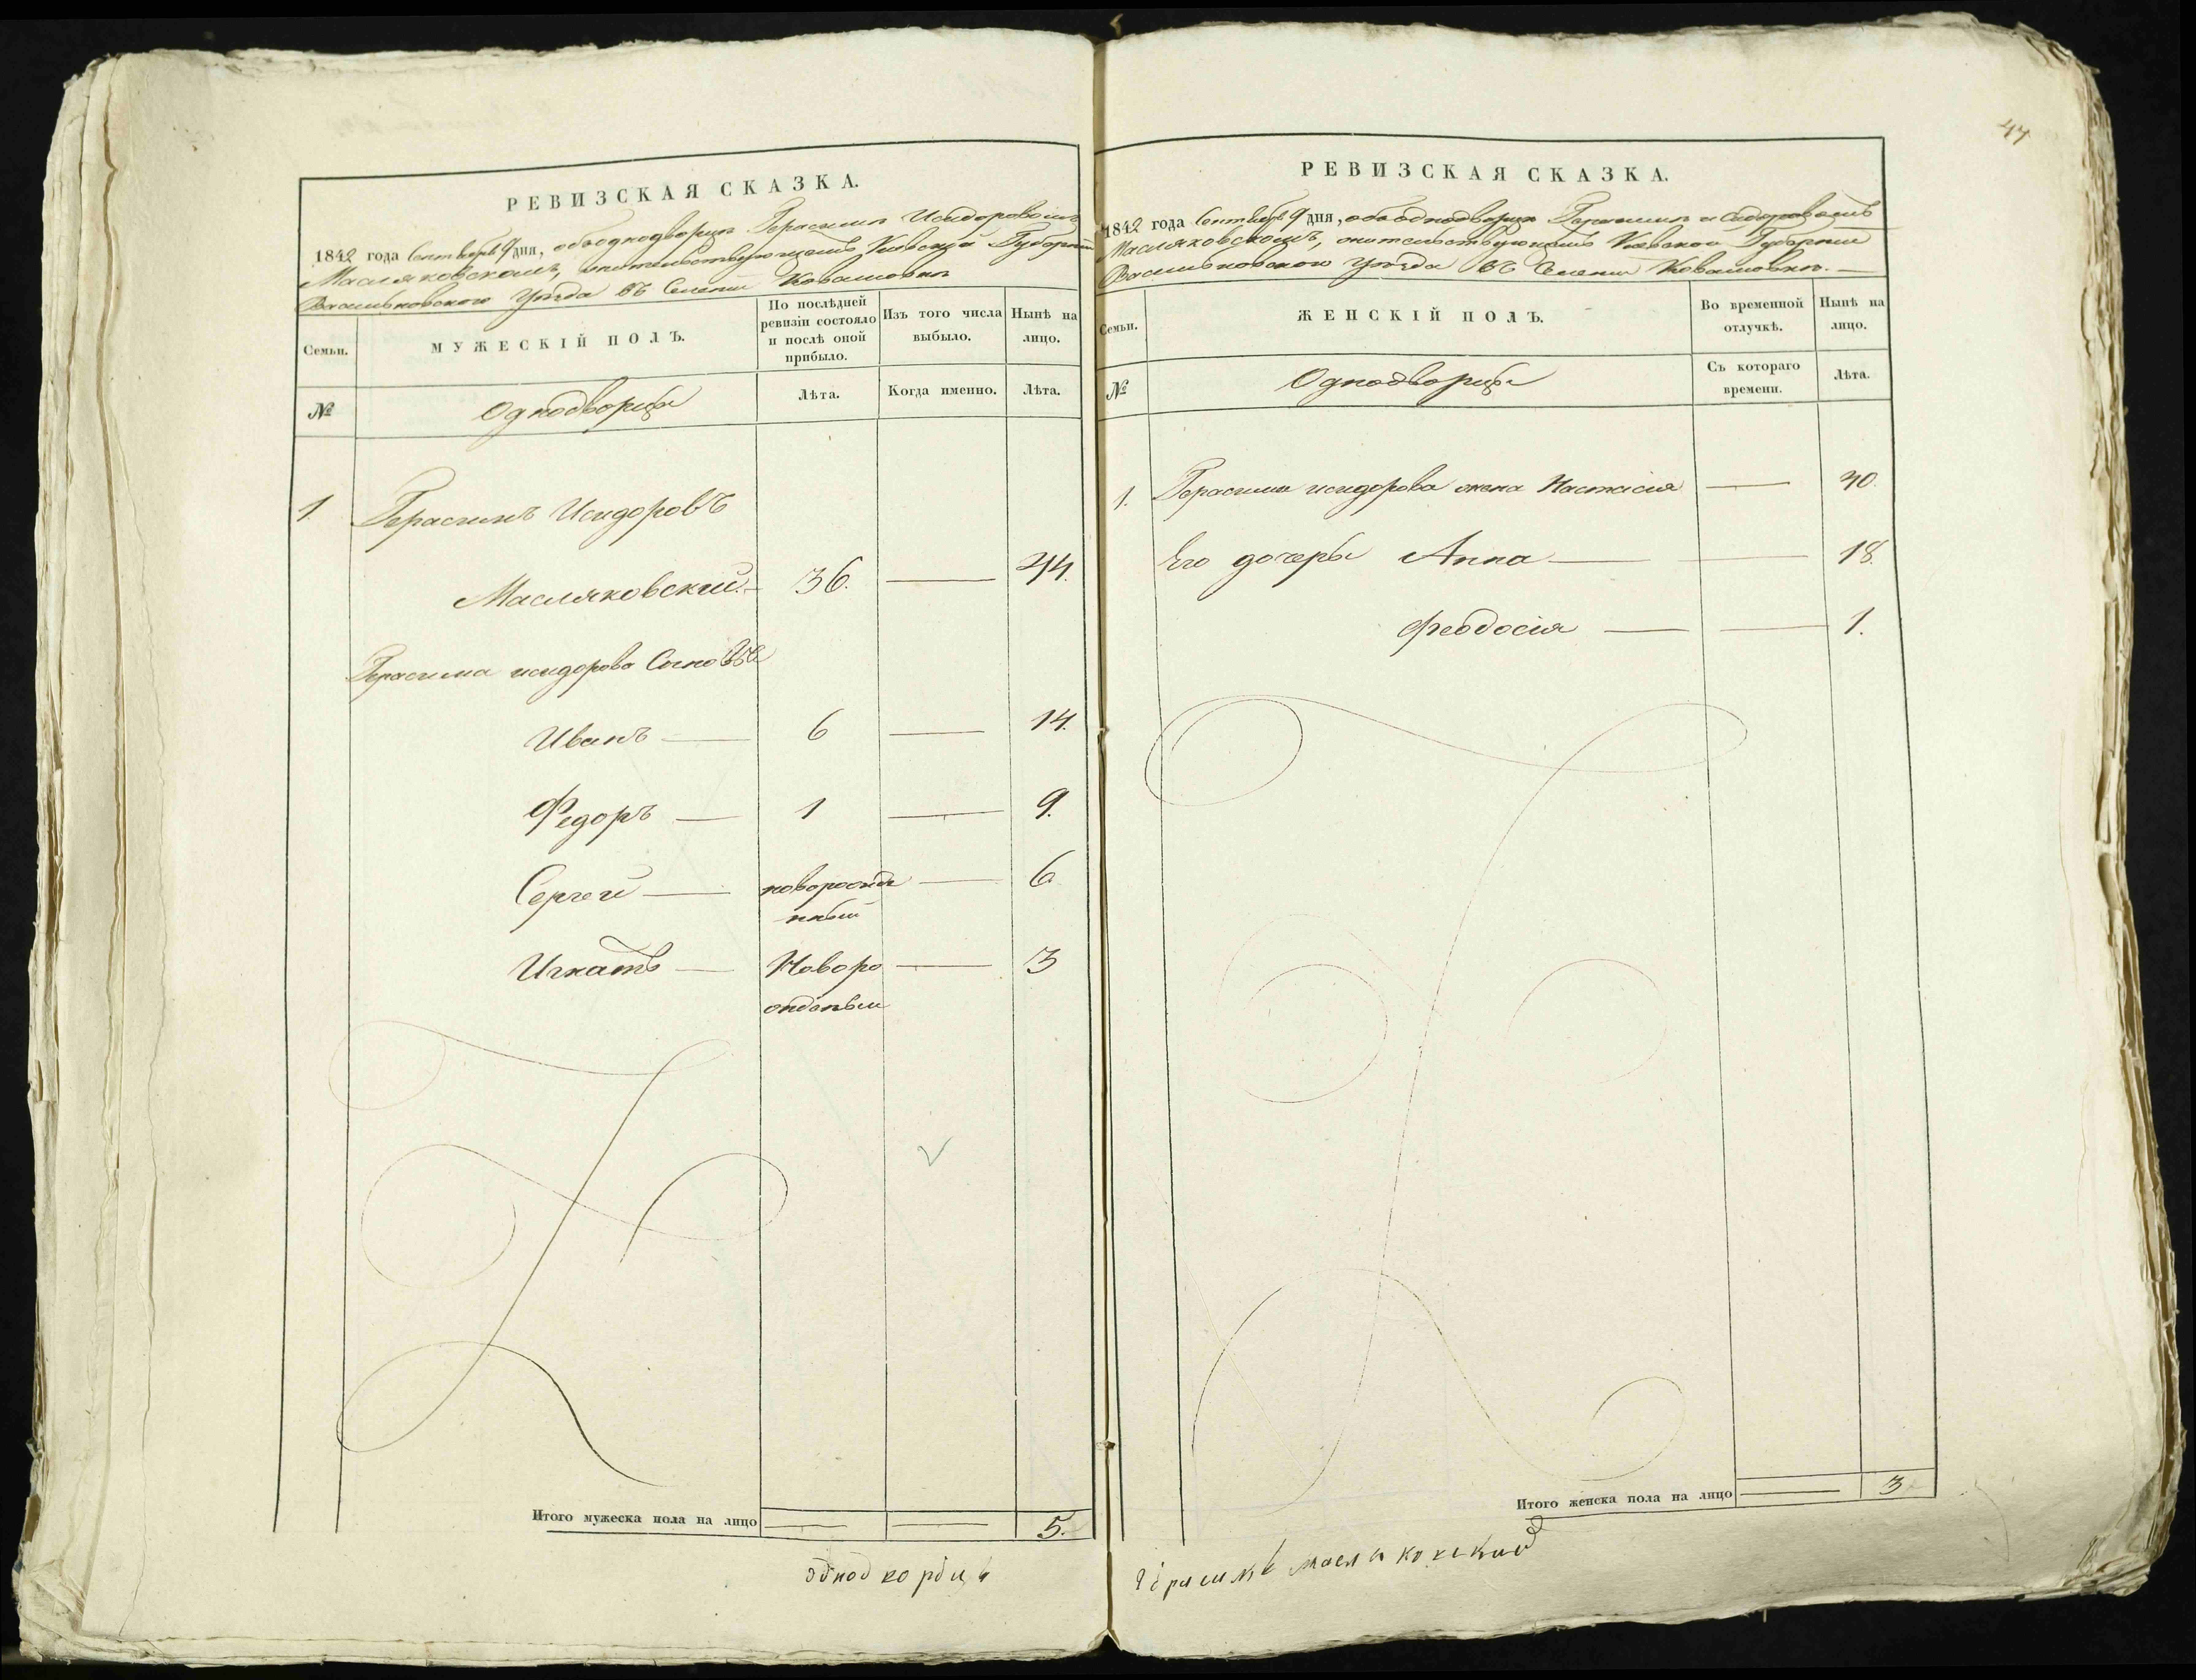 РЕВИЗСКАЯ СКАЗКА.
1842 года Сентября 9 дня, объ однодворцѣ Герасимѣ Исидоровомъ
Масляковскомъ, жительствующемъ Кіевской Губерніи
Васильковского уѣзда въ Селеніи Ковалиовкѣ
Семьи.
МУЖЕСКІЙ ПОЛЪ.
По послѣдней ревизіи состояло и послѣ оной прибыло.
Изъ того числа выбыло.
Нынѣ на лицо.
№
Однодворцы
Лѣта.
Когда именно.
Лѣта.
1. Герасимъ Исидоровъ
Масляковскій. 36. — 44.
Герасима исидорова Сыновья
Иванъ — 6 — 14.
Федоръ — 1 — 9.
Сергей — новорожде — 6
нный
Игнатъ — Новоро — 3
жденый
Итого мужеска пола на лицо — — 5.
однодворецъ
44
РЕВИЗСКАЯ СКАЗКА.
1842 года Сентября 9 дня, объ однодворцѣ Герасимѣ исидоровомъ
Масляковскомъ, жительствующемъ Кіевской Губерніи
Васильковского уѣзда въ Селеніи Ковалиовкѣ. —
Семьи.
ЖЕНСКІЙ ПОЛЪ.
Во временной отлучкѣ.
Нынѣ на лицо.
№
Однодворцы
Съ котораго времени.
Лѣта.
1. Герасима исидорова жена Настасія — 40.
Его дочеры Анна — — 18.
Феодосія — — 1.
Итого женска пола на лицо — 3
Герасимъ масляковский